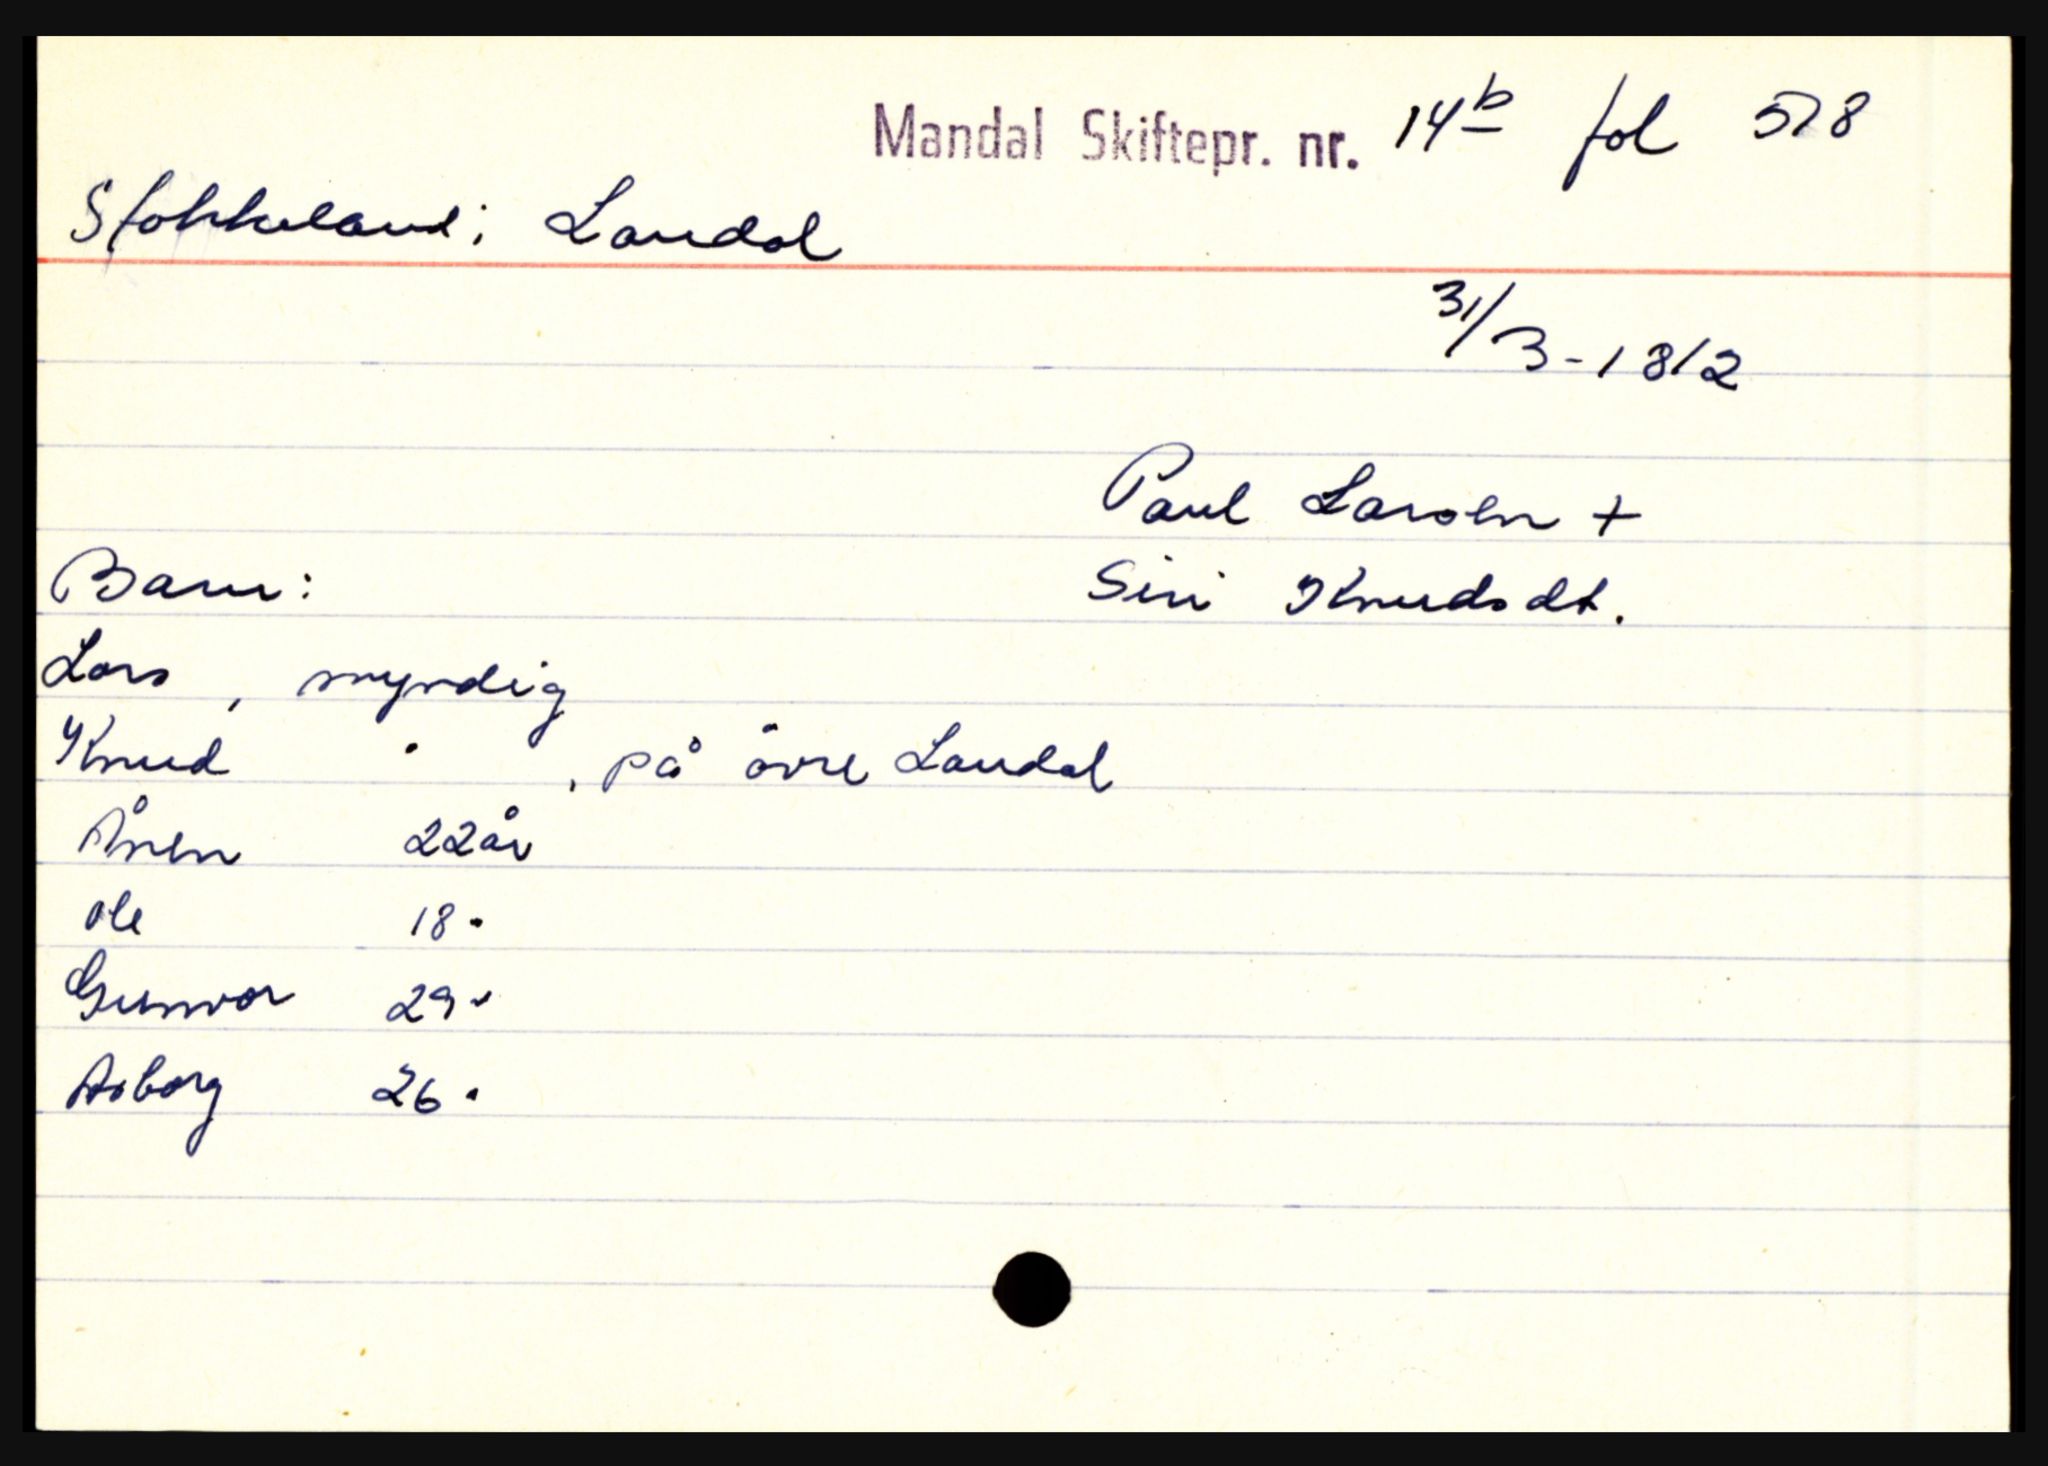 Mandal Skiftepr. nr. 14b fol 578
Stokkeland i Laudal
31/3-1812
Paul Larsen +
Barn: Siri Knudsdt.
Lars , myndig
Knud " , på övre Laudal
Ånen 22 år
Ole 18 "
Gunvor 29 "
Asborg 26 "